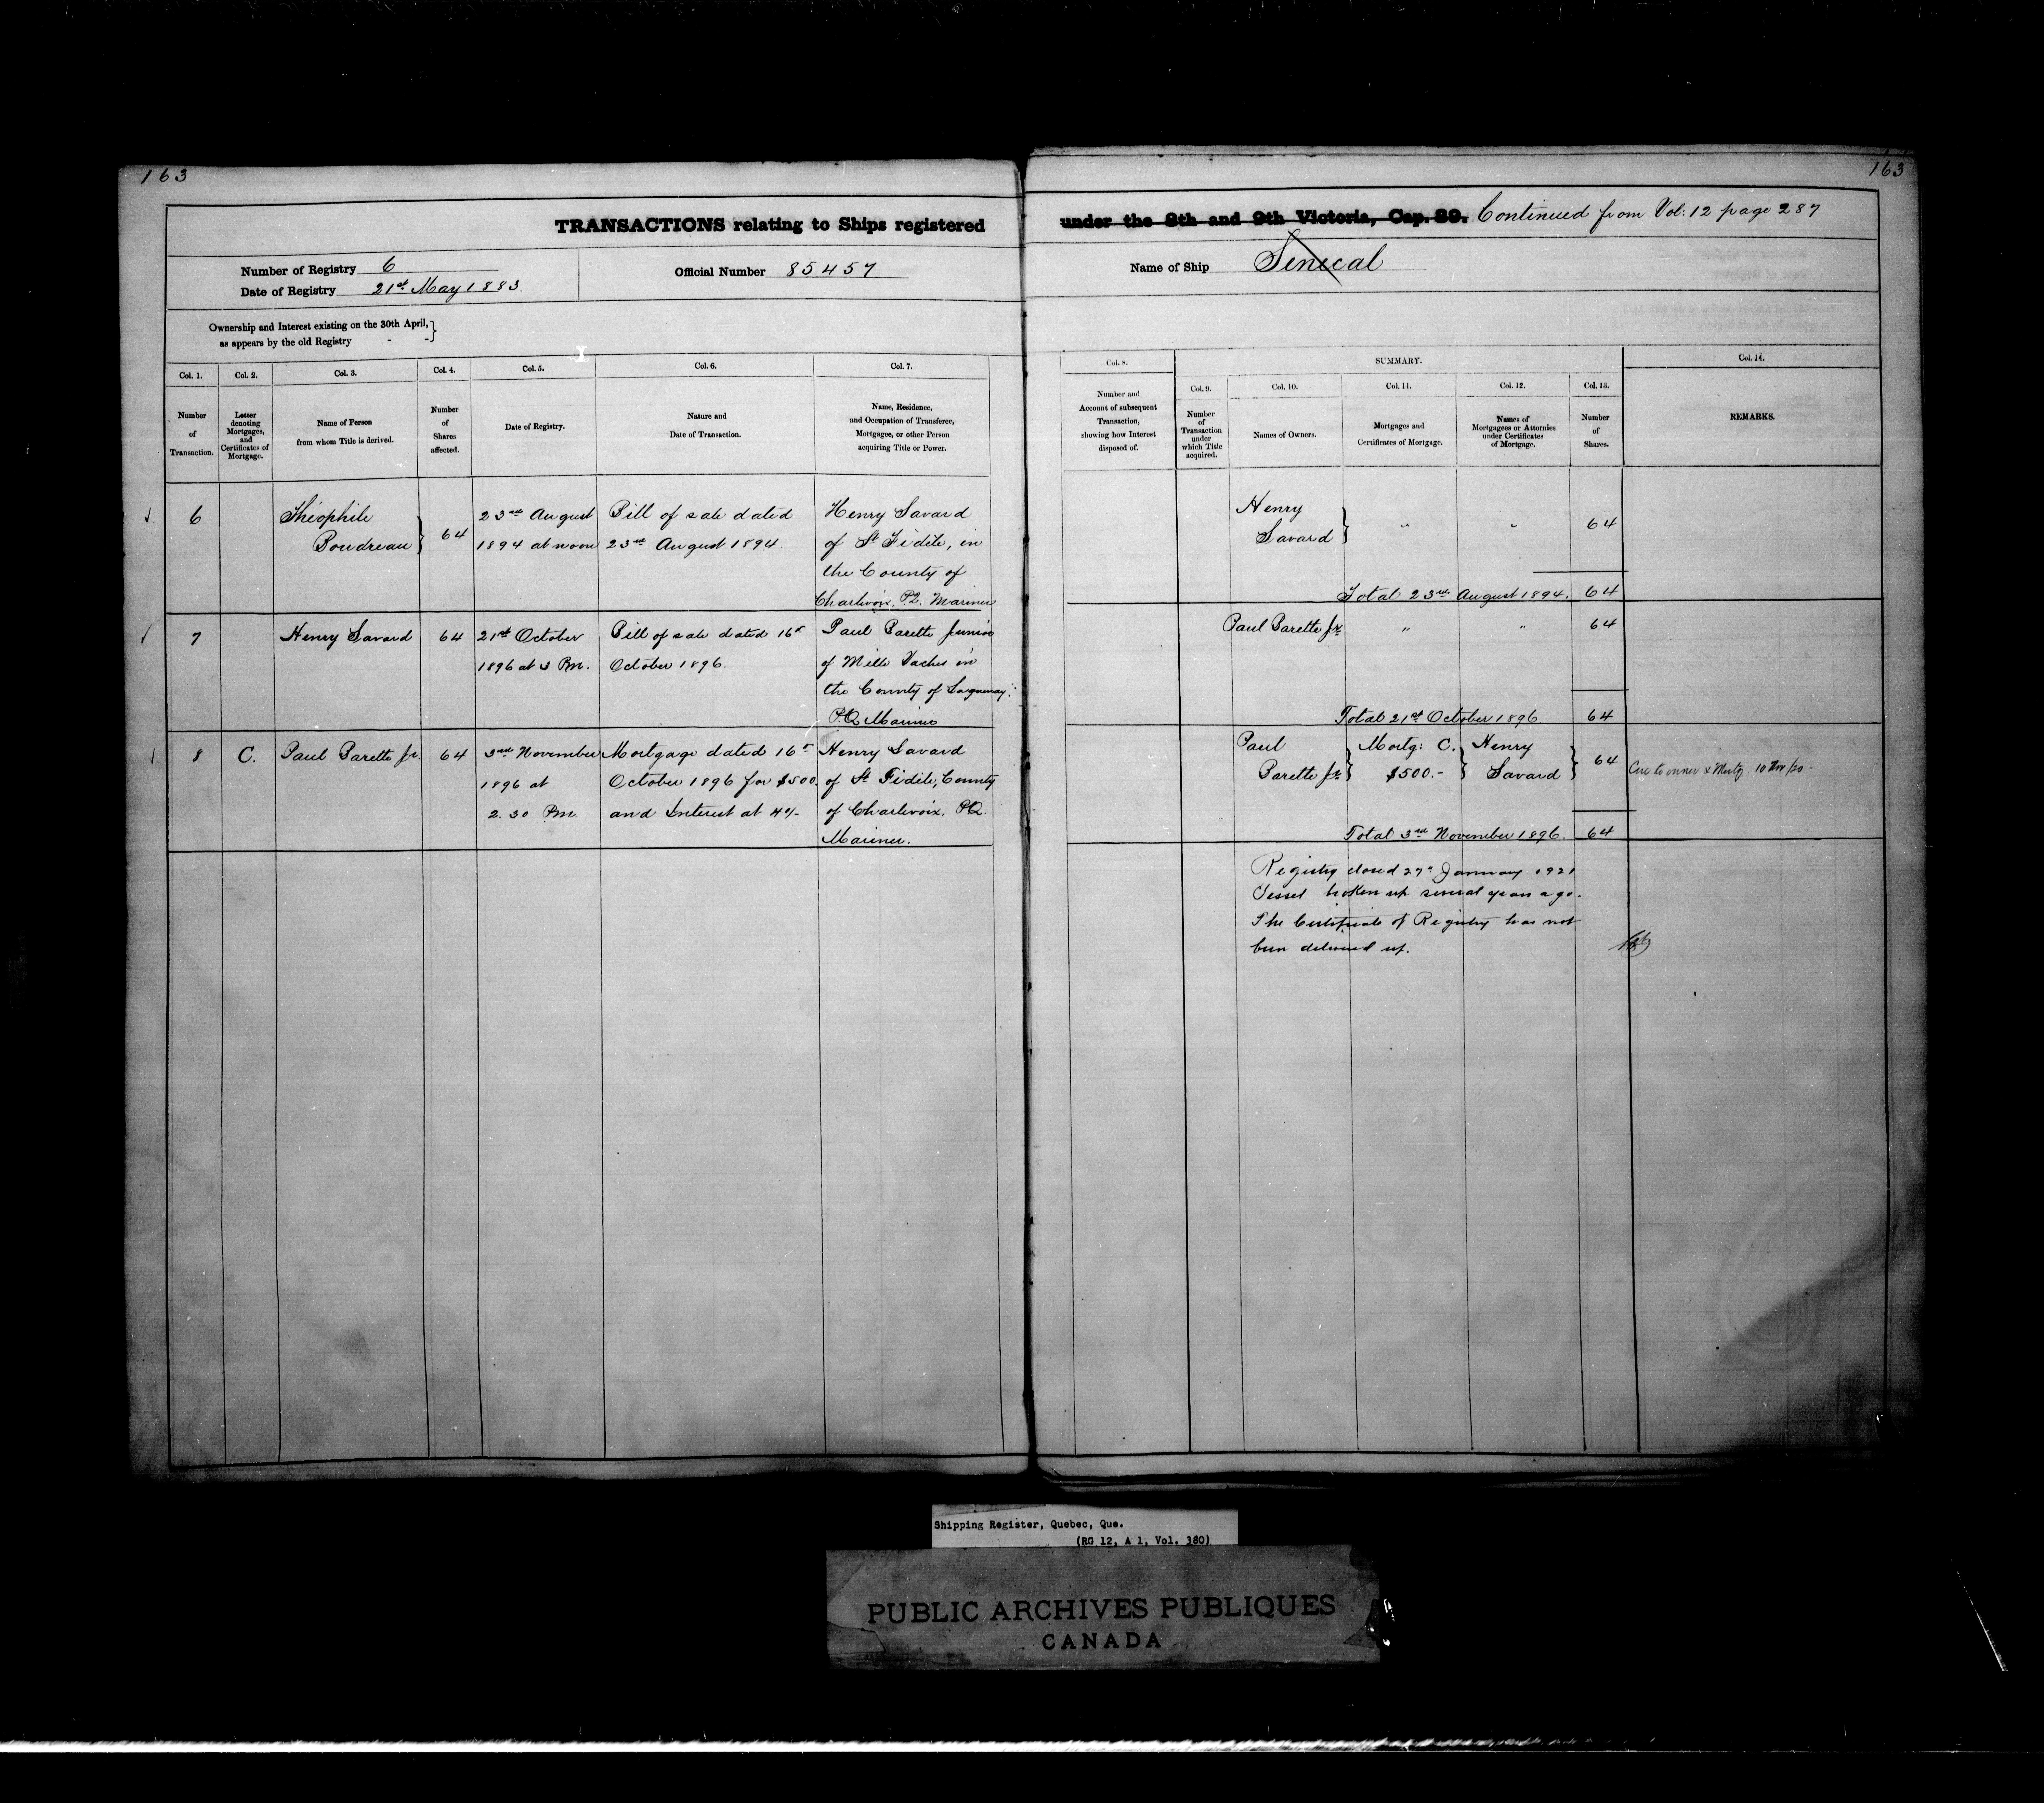 163
163
TRANSACTIONS relating to Ships registered
under the 8th and 9th Victoria, Cap. 89. Continued from Vol: 12 page 287
Number of Registry 6
Date of Registry 21st May 1883.
Official Number 85457
Name of Ship Senecal
Ownership and Interest existing on the 30th April,
as appears by the old Registry - -
Col. 1.
Number
of
Transaction.
Col. 2.
Letter
denoting
Mortgages,
and
Certificates of
Mortgage.
Col. 3.
Name of Person
from whom Title is derived.
Col. 4.
Number
of
Shares
affected.
Col. 5.
Date of Registry.
Col. 6.
Nature and
Date of Transaction.
Col. 7.
Name, Residence,
and Occupation of Transferee,
Mortgagee, or other Person
acquiring Title or Power.
Col. 8.
Number and
Account of subsequent
Transaction,
showing how Interest
disposed of.
SUMMARY.
Col. 9.
Number
of
Transaction
under
which Title
acquired.
Col. 10.
Names of Owners.
Col. 11.
Mortgages and
Certificates of Mortgage.
Col. 12.
Names of
Mortgagees or Attornies
under Certificates
of Mortgage.
Col. 13.
Number
of
Shares.
Col. 14.
REMARKS.
6
Théophile
Boudreau
64
23rd August
1894 at noon
Bill of sale dated
23rd August 1894.
Henry Savard
of St Fidèle, in
the County of
Charlevoix, P.Q. Mariner
Henry
Savard
"
"
64
Total 23rd August 1894. 64
7
Henry Savard
64
21st October
1896 at 3 Pm.
Bill of sale dated 16th
October 1896.
Paul Barette Junior
of Mille Vaches in
the County of Saguenay.
P.Q. Mariner
Paul Barette Jr.
"
"
64
Total 21st October 1896 64
8
C.
Paul Barette Jr.
64
3rd November
1896 at
2.30 Pm.
Mortgage dated 16th
October 1896 for $500.
and Interest at 4%
Henry Savard
of St Fidèle, County
of Charlevoix. P.Q.
Mariner.
Paul
Barette Jr
Mortg: C.
$500.-
Henry
Savard
64
to owner & Mortg. 10
Total 3rd November 1896. 64
Registry closed 27th January 1921
Vessel broken up several years ago.
The Certificate of Registry has not
been delivered up.
Shipping Register, Quebec, Que.
(RG 12, A 1, Vol. 380)
PUBLIC ARCHIVES PUBLIQUES
CANADA